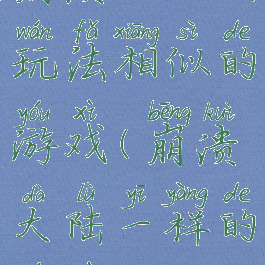 wán fǎ xiāng sì de
玩法相似的
yóu xì bēng kuì
游戏(崩溃
dà lù yī yàng de
大陆一样的